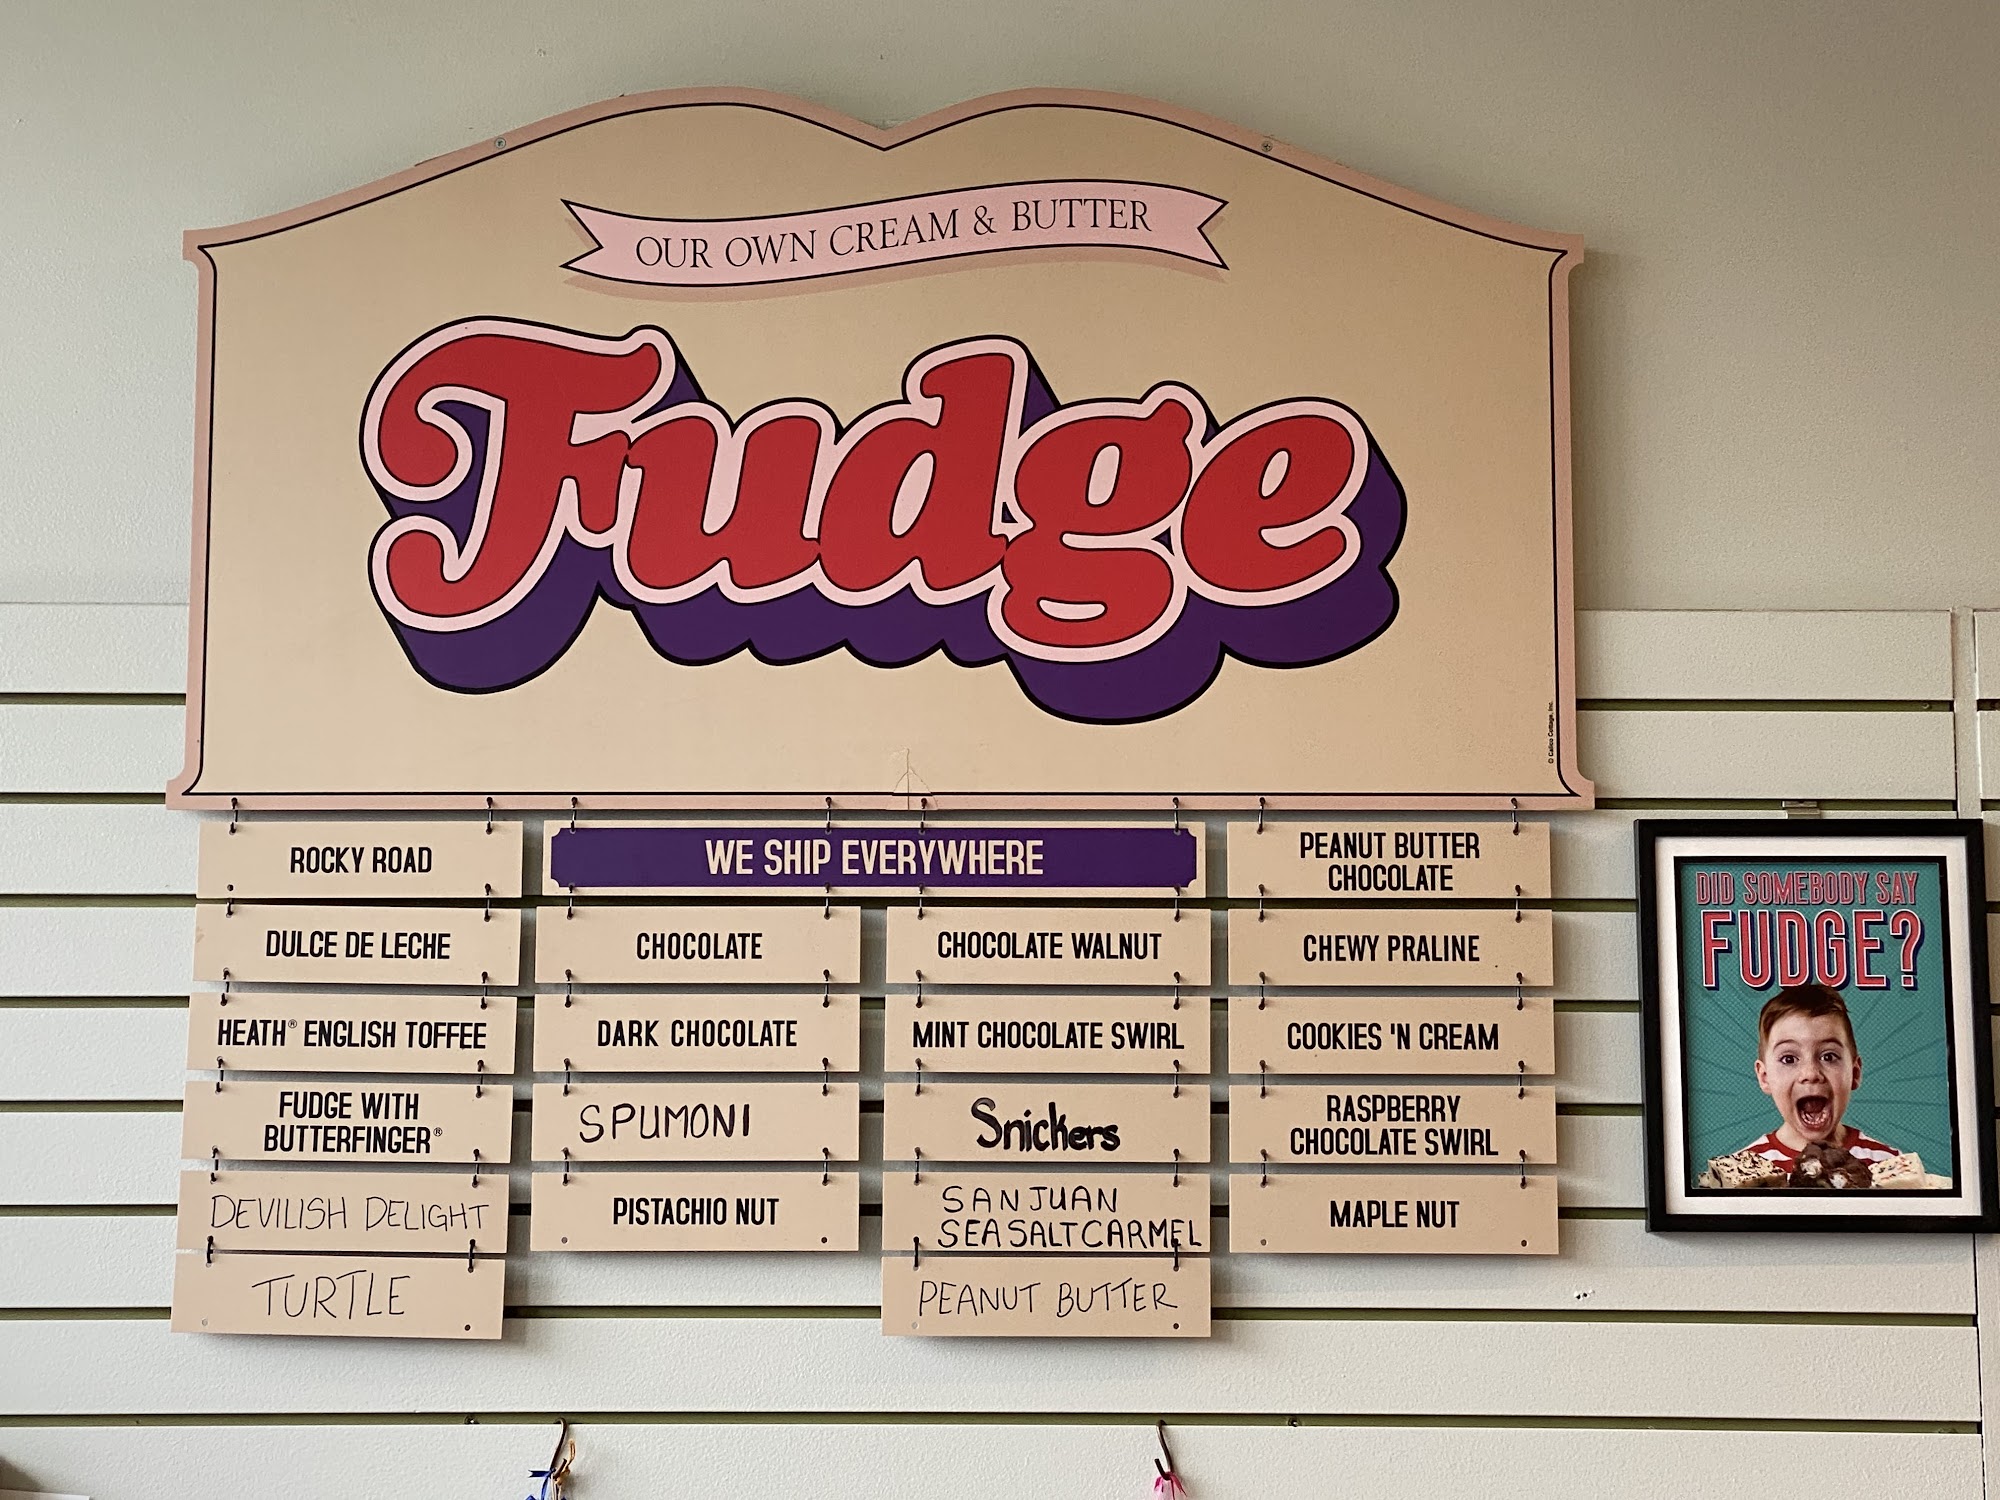 OUR OWN CREAM & BUTTER
Fudge
© Calico Cottage, Inc.
WE SHIP EVERYWHERE
ROCKY ROAD
DULCE DE LECHE
HEATH® ENGLISH TOFFEE
FUDGE WITH
BUTTERFINGER®
DEVILISH DELIGHT
TURTLE
CHOCOLATE
DARK CHOCOLATE
SPUMONI
PISTACHIO NUT
CHOCOLATE WALNUT
MINT CHOCOLATE SWIRL
Snickers
SAN JUAN
SEA SALT CARMEL
PEANUT BUTTER
PEANUT BUTTER
CHOCOLATE
CHEWY PRALINE
COOKIES 'N CREAM
RASPBERRY
CHOCOLATE SWIRL
MAPLE NUT
DID SOMEBODY SAY
FUDGE?